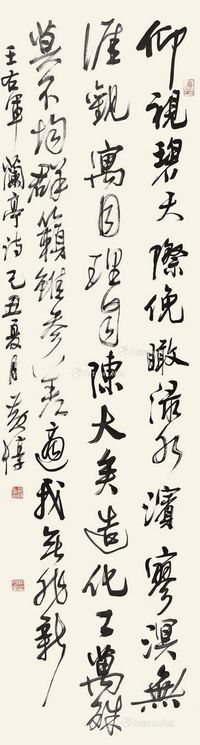 仰視碧天際俛瞰淥水濱寥溟無
涯觀寓目理自陳大矣造化工萬殊
莫不均群籟雖參差適我無非新
王右軍蘭亭詩己丑夏月黃惇